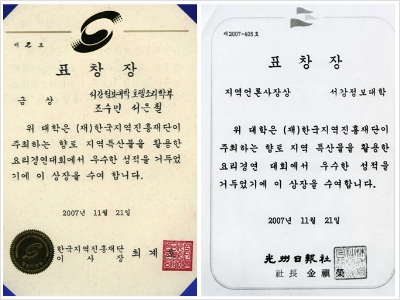 제 2 호
표 창 장
금 상
서강정보대학 호텔조리학부
조수민 서은철
위 대학은 (재)한국지역진흥재단이
주최하는 향토 지역 특산물을 활용한
요리경연대회에서 우수한 성적을 거두었
기에 이 상장을 수여 합니다.
2007년 11월 21일
한국지역진흥재단
이 사 장 최 계
제2007-605호
표 창 장
지역언론사장상 서강정보대학
위 대학은 (재)한국지역진흥재단이
주최하는 향토 지역 특산물을 활용한
요리경연 대회에서 우수한 성적을
거두었기에 이 상장을 수여합니다.
2007년 11월 21일
光州日報社
社長 金